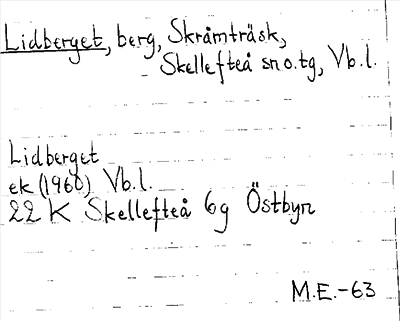 Lidberget, berg, Skråmträsk,
Skellefteå sn o. tg, Vb. l.
Lidberget
ek (1960) Vb. l.
22 K Skellefteå 6g Östbyn
M.E.-63